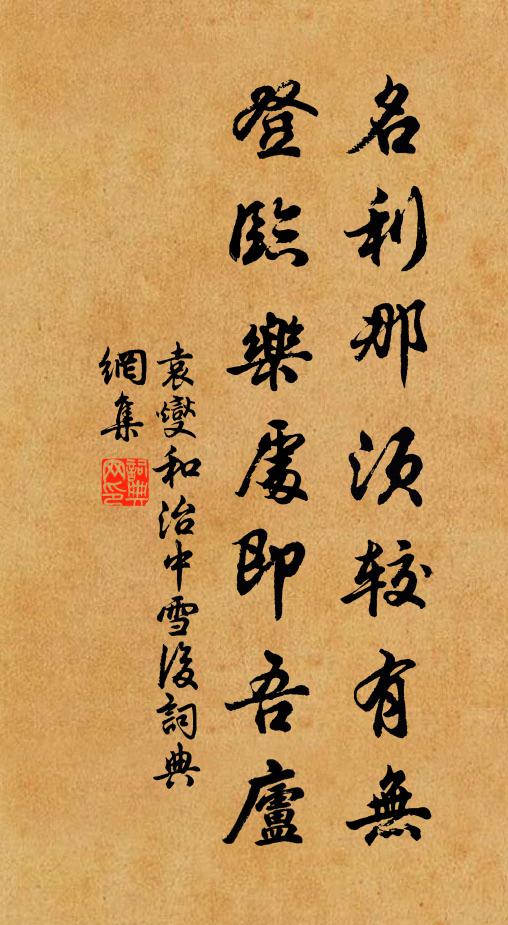 名利那須較有無
登臨樂處即吾廬
袁燮和治中雪後詞典
網集
詞典
网印